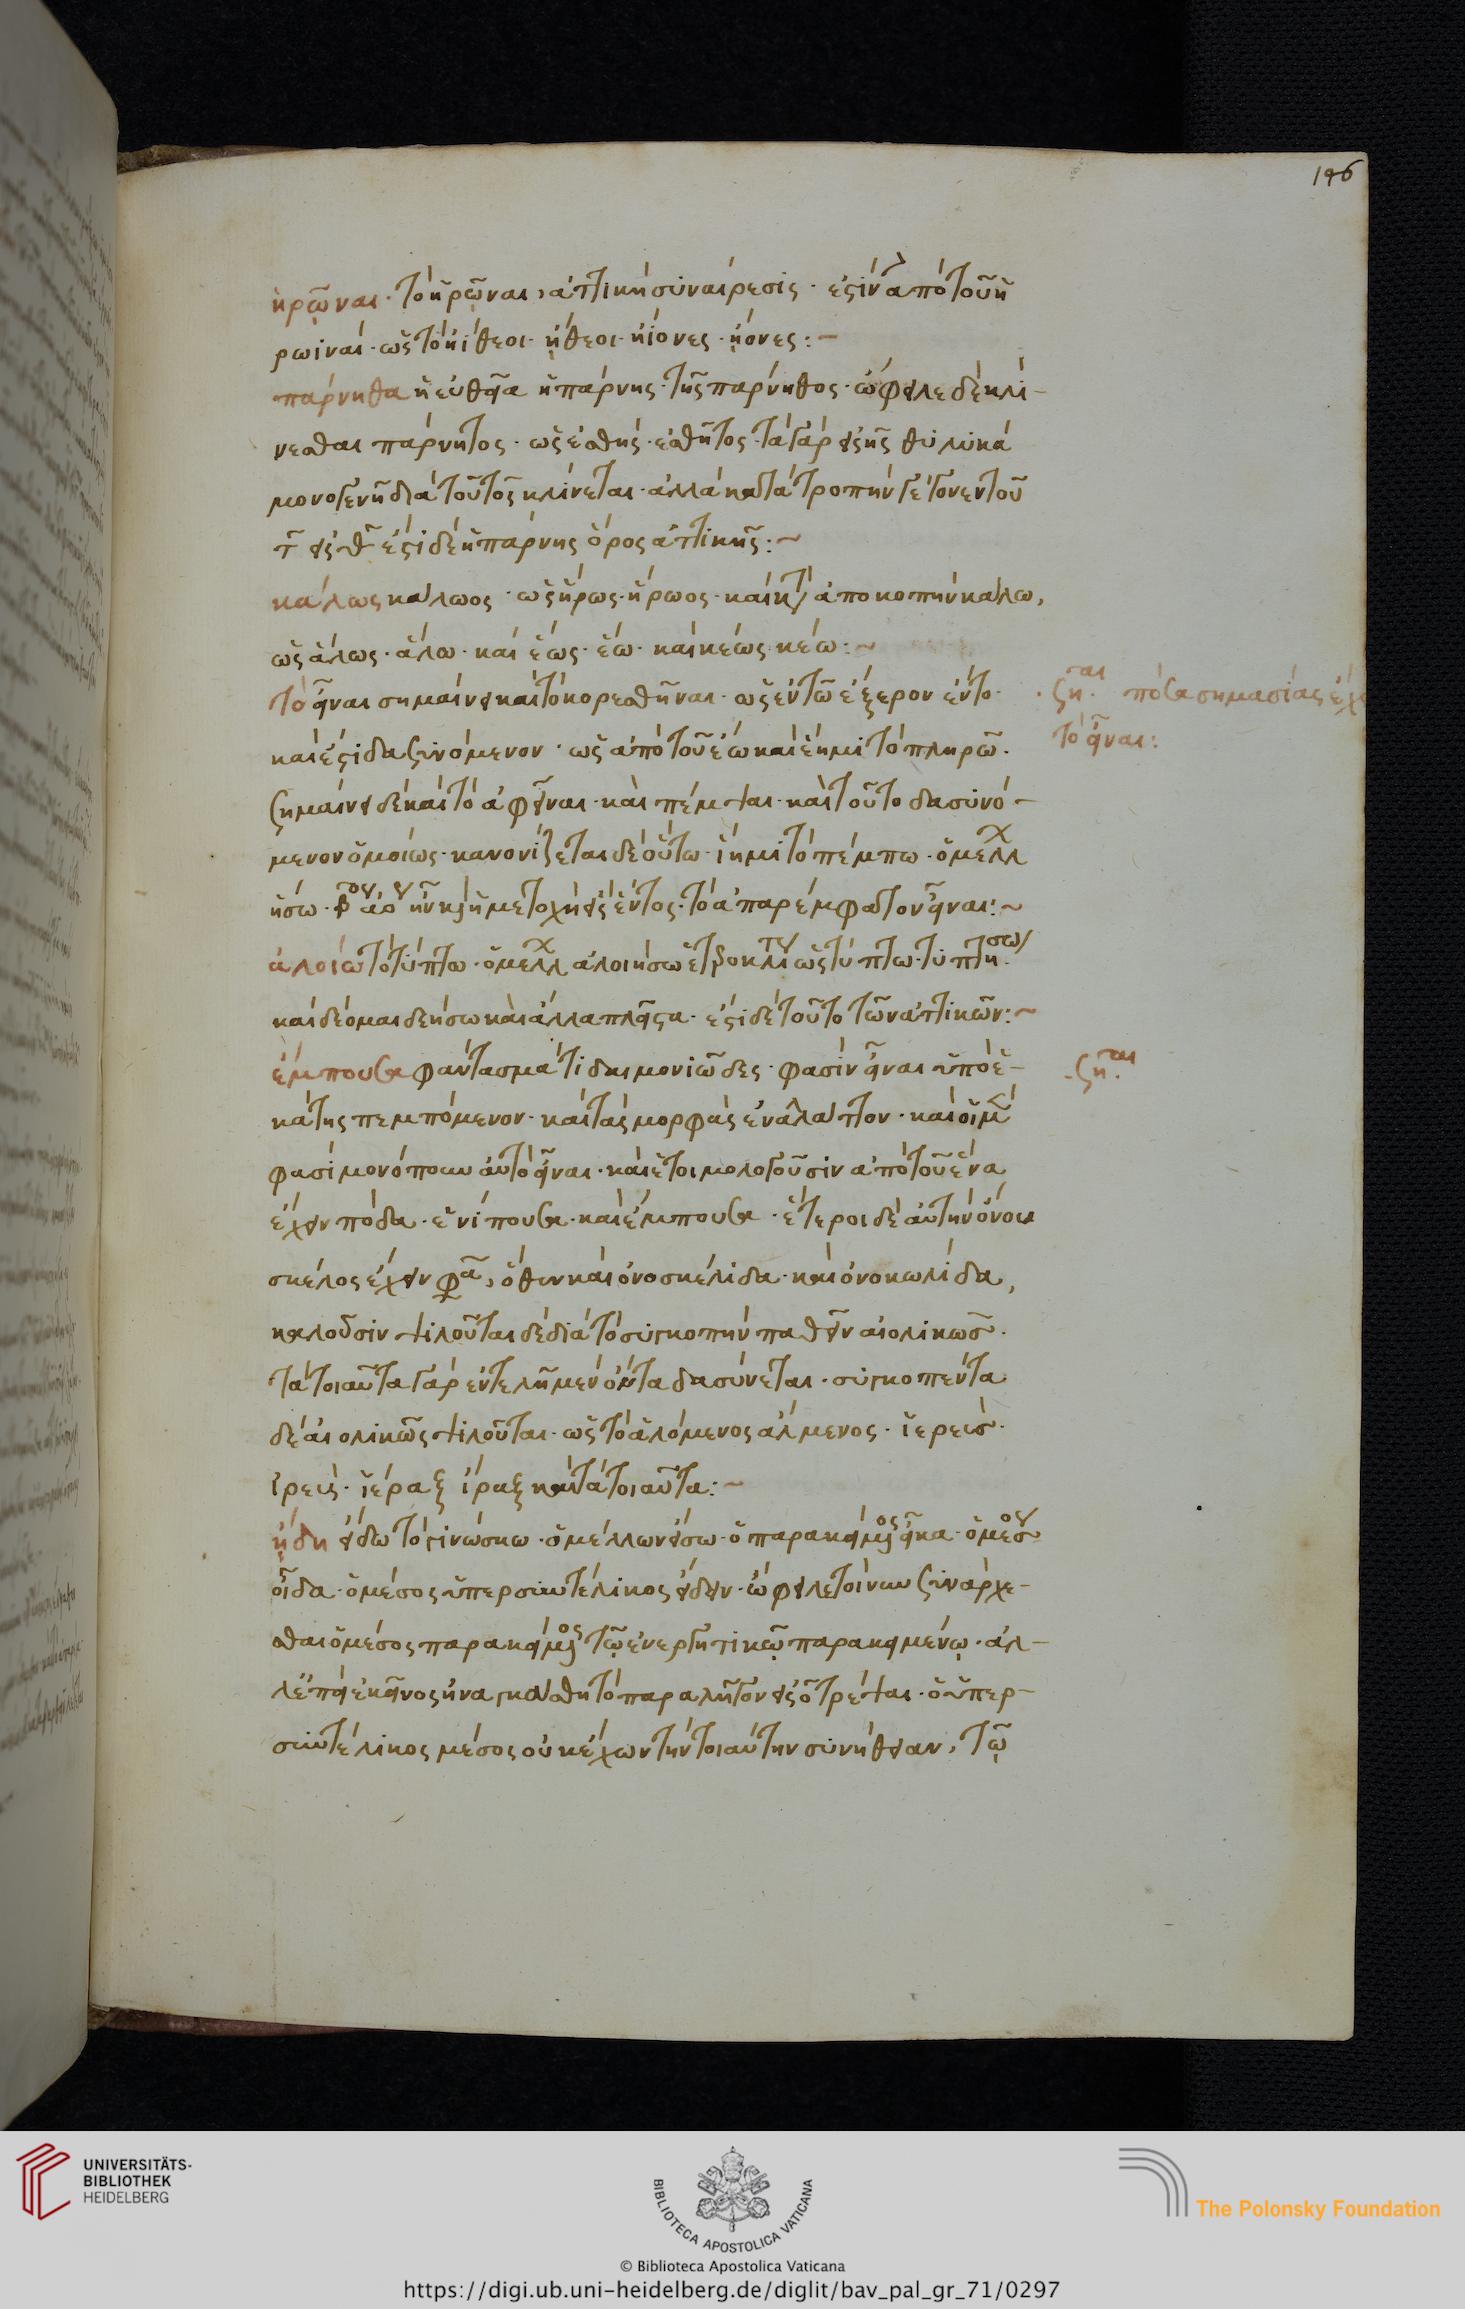 146
ἡρῷναι · τὸ ἡρῷναι, ἀττικὴ συναίρεσις · ἔστιν ἀπὸ τοῦ ἡ
ρωίναι · ὡς τὸ ἠίθεοι · ᾔθεοι · ἠίονες · ᾔονες :~
πάρνηθα ἡ εὐθεῖα ἡ πάρνης · τῆς πάρνηθος · ὤφειλε δὲ κλί-
νεσθαι πάρνητος · ὡς ἐσθής · ἐσθῆτος · τὰ γὰρ εἰς ης θηλυκὰ
μονογενῆ διὰ τοῦ τος κλίνεται · ἀλλὰ κατὰ τροπὴν γέγονεν τοῦ
τ εἰς θ ἔστι δὲ ἡ πάρνης ὄρος ἀττικῆς :~
κάλως κάλωος · ὡς ἥρως · ἥρωος · καὶ κατ ἀποκοπὴν κάλω,
ὡς ἅλως · ἅλω · καὶ ἕως · ἕω · καὶ κέως κέω :~
τὸ εἶναι σημαίνει καὶ τὸ κορεσθῆναι · ὡς ἐν τῶ ἐξ ἔρον ἕντο ·
καὶ ἔστι δασυνόμενον · ὡς ἀπὸ τοῦ ἕω καὶ ἕημι τὸ πληρῶ ·
σημαίνει δὲ καὶ τὸ ἀφεῖναι · καὶ πέμψαι · καὶ τοῦτο δασυνό-
μενον ὁμοίως · κανονίζεται δὲ οὕτω · ἵημι τὸ πέμπω · ὁ μέλλ
ἥσω · β αό ἧν κ ἡ μετοχὴ εἷς ἕντος · τὸ ἀπαρέμφατον εἷναι :~
ἀλοιῶ τὸ τύπτω · ὁ μέλλ ἀλοιήσω ὡς τύπτω · τυπτήσω
καὶ δέομαι δεήσω καὶ ἄλλα πλεῖστα · ἔστι δὲ τοῦτο τῶν ἀττικῶν :~
ἔμπουσα φάντασμά τι δαιμονιῶδες · φασὶν εἶναι ὑπὸ ἑ-
κάτης πεμπόμενον · καὶ τὰς μορφὰς ἐναλάττον · καὶ οἱ μ
φασὶ μονόπουν αὐτὸ εἶναι · καὶ ἐτοιμολογοῦσιν ἀπὸ τοῦ ἕνα
ἔχειν πόδα · ἑνίπουσα · καὶ ἔμπουσα · ἕτεροι δὲ αὐτὴν ὄνου
σκέλος ἔχειν φα, ὅθεν καὶ ὀνοσκελίδα · καὶ ὀνοκωλίδα,
καλοῦσιν ψιλοῦται δὲ διὰ τὸ συγκοπὴν παθεῖν αἰολικῶς ·
τὰ τοιαῦτα γὰρ ἐντελῆ μὲν ὄντα δασύνεται · συγκοπέντα
δὲ αἰολικῶς ψιλοῦται · ὡς τὸ ἁλόμενος ἄλμενος · ἱερεὶς ·
ἰρεὶς · ἱέραξ ἴραξ καὶ τὰ τοιαῦτα :~
ᾔδη εἴδω τὸ γινώσκω · ὁ μέλλων εἴσω · ὁ παρακείμος εἶκα · ὁ μέσου
οἶδα · ὁ μέσος ὑπερσυντέλικος εἴδειν · ὤφειλε τοίνυν συνάρχε-
σθαι ὁ μέσος παρακείμος τῷ ἐνεργητικῷ παρακειμένῳ · ἀλ-
λ ἐπεὶ ἐκεῖνος ἠναγκάσθη τὸ παραλῆγον εἰς ο τρέψαι · ὁ ὑπερ-
συντέλικος μέσος οὐκ ἔχων τὴν τοιαύτην συνήθειαν, τῷ
ζηται πόσα σημασίας ἔχ
τὸ εἶναι :
ζηται
UNIVERSITÄTS-
BIBLIOTHEK
HEIDELBERG
BIBLIOTECA APOSTOLICA VATICANA
The Polonsky Foundation
© Biblioteca Apostolica Vaticana
https://digi.ub.uni-heidelberg.de/diglit/bav_pal_gr_71/0297